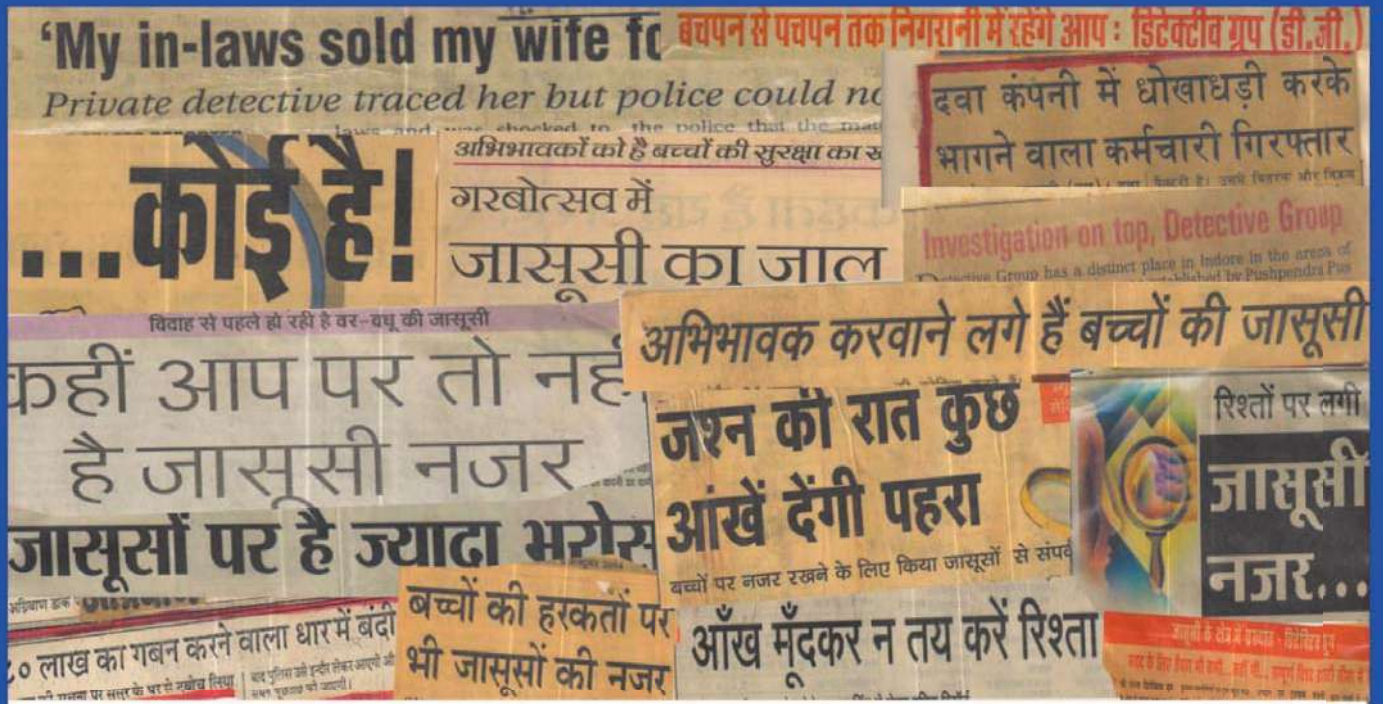 'My in-laws sold my wife
Private detective traced her but police could
laws and was shocked to the police that the
बचपन से पचपन तक निगरानी में रहेंगे आप : डिटेक्टीव ग्रुप (डी.जी.)
दवा कंपनी में धोखाधड़ी करके
भागने वाला कर्मचारी गिरफ्तार
...कोई है!
अभिभावकों को है बच्चों की सुरक्षा का
गरबोत्सव में
जासूसी का जाल
Investigation on top, Detective Group
Detective Group has a distinct place in Indore in the areas of
by Pushpendra
विवाह से पहले हो रही है वर-वधू की जासूसी
कहीं आप पर तो नहीं
है जासूसी नजर
अभिभावक करवाने लगे हैं बच्चों की जासूसी
जश्न की रात कुछ
आंखें देंगी पहरा
बच्चों पर नजर रखने के लिए किया जासूसों से
रिश्तों पर लगी
जासूसी
नजर...
जासूसों पर है ज्यादा
लाख का गबन करने वाला धार में बंदी
बच्चों की हरकतों पर
भी जासूसों की नजर
आँख मूँदकर न तय करें रिश्ता